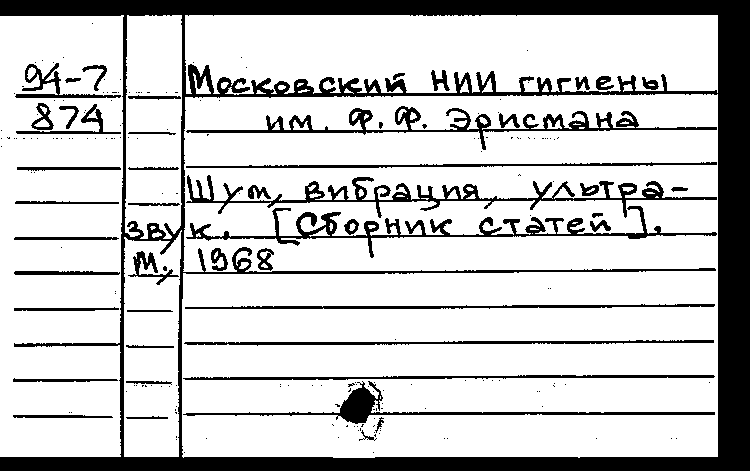 94-7 Московский НИИ гигиены
874 им. Ф. Ф. Эрисмана
Шум, вибрация, ультра-
звук. [Сборник статей].
М., 1968